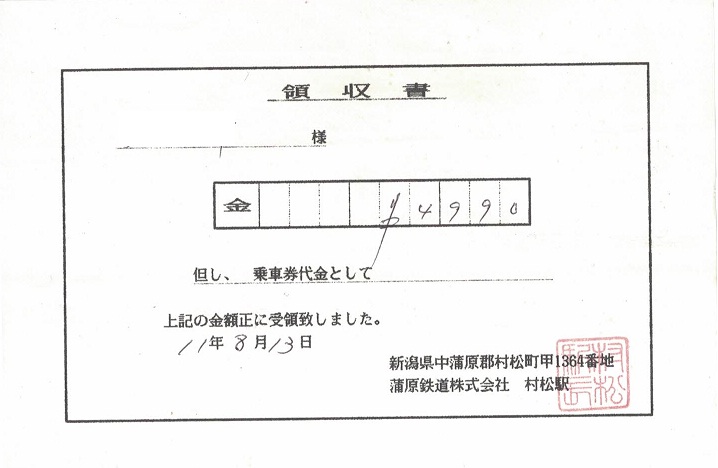 領収書
様
金 ¥4990
但し、 乗車券代金として
上記の金額正に受領致しました。
11年8月13日
新潟県中蒲原郡村松町甲1364番地
蒲原鉄道株式会社 村松駅
村松
駅長